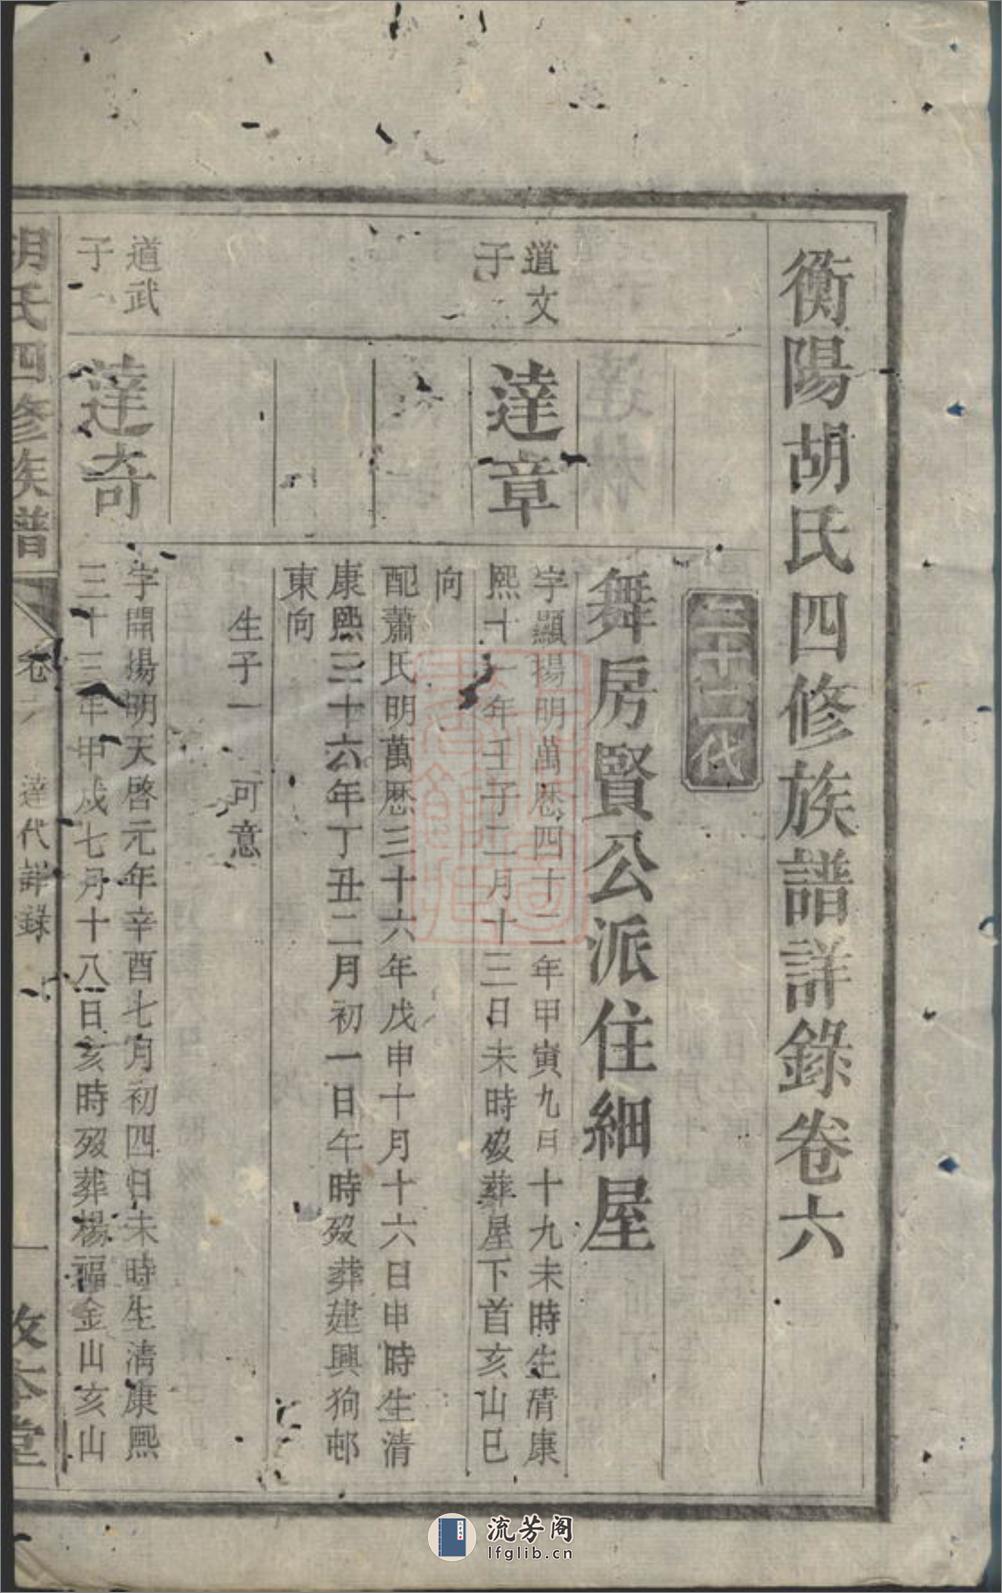 衡陽胡氏四修族譜詳錄卷六
二十二代
舞房賢公派住細屋
道文
子
達章
字顯揚明萬歷四十二年甲寅九月十九未時生清康
熙十一年壬子二月十三日未時歿葬屋下首亥山巳
向
配蕭氏明萬歷三十六年戊申十月十六日申時生清
康熙三十六年丁丑二月初一日午時歿葬建興狗邨
東向
生子一 可意
道武
子
達奇
字開揚明天啓元年辛酉七月初四日未時生清康熙
三十三年甲戌七月十八日亥時歿葬楊福金山亥山
胡氏四修族譜
卷六 達代詳錄
一
敦本堂
流芳阁
lfglib.cn